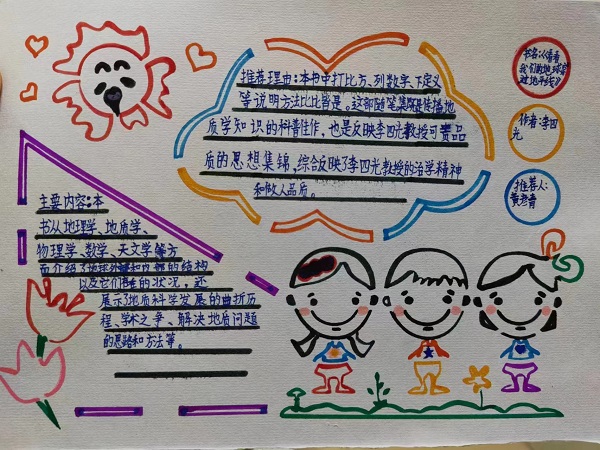 推荐理由:本书中打比方、列数字、下定义
等说明方法比比皆是。这部随笔集既是传播地
质学知识的科普佳作,也是反映李四光教授可贵品
质的思想集锦,综合反映了李四光教授的治学精神
和做人品质。
书名:《看看
我们的地球
地平线》
作者:李四
光
推荐人:
主要内容:本
书从地理学、地质学、
物理学、数学、天文学等方
面介绍了地球的结构
以及它们的状况,还
展示了地质科学发展的曲折历
程、学术之争、解决地质问题
的思路和方法等。